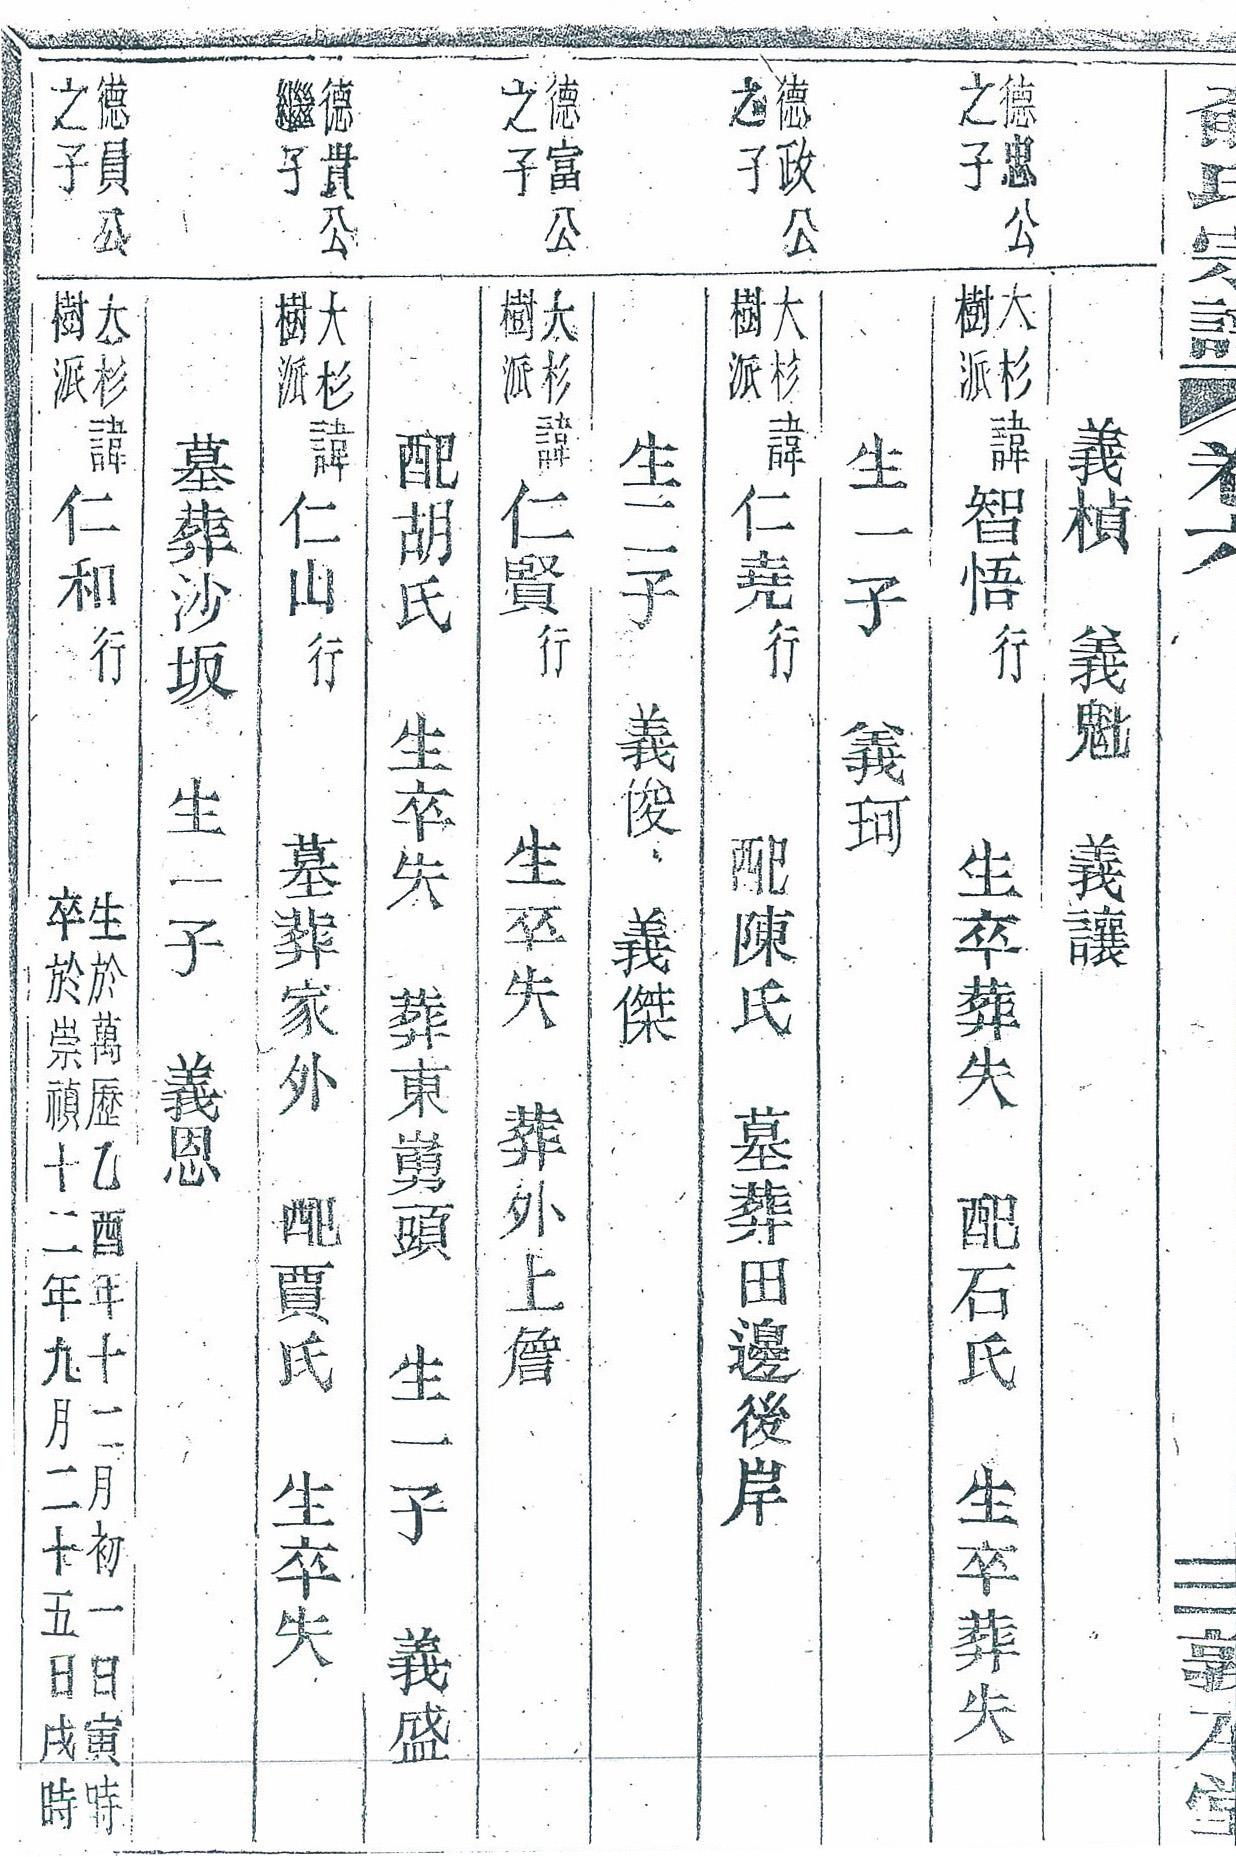 氏宗譜 卷六 三 敦本堂
義楨 義魁 義讓
德忠公
之子
大杉
樹派
諱智悟行 生卒葬失 配石氏 生卒葬失
生一子 義珂
德政公
之子
大杉
樹派
諱仁堯行 配陳氏 墓葬田邊後岸
生二子 義俊 義傑
德富公
之子
大杉
樹派
諱仁賢行 生卒失 葬外上詹
配胡氏 生卒失 葬東嵩頭 生一子 義盛
德貴公
繼子
大杉
樹派
諱仁山行 墓葬家外 配賈氏 生卒失
墓葬沙坂 生一子 義恩
德員公
之子
大杉
樹派
諱仁和行
生於萬歷乙酉年十二月初一日寅時
卒於崇禎十二年九月二十五日戌時